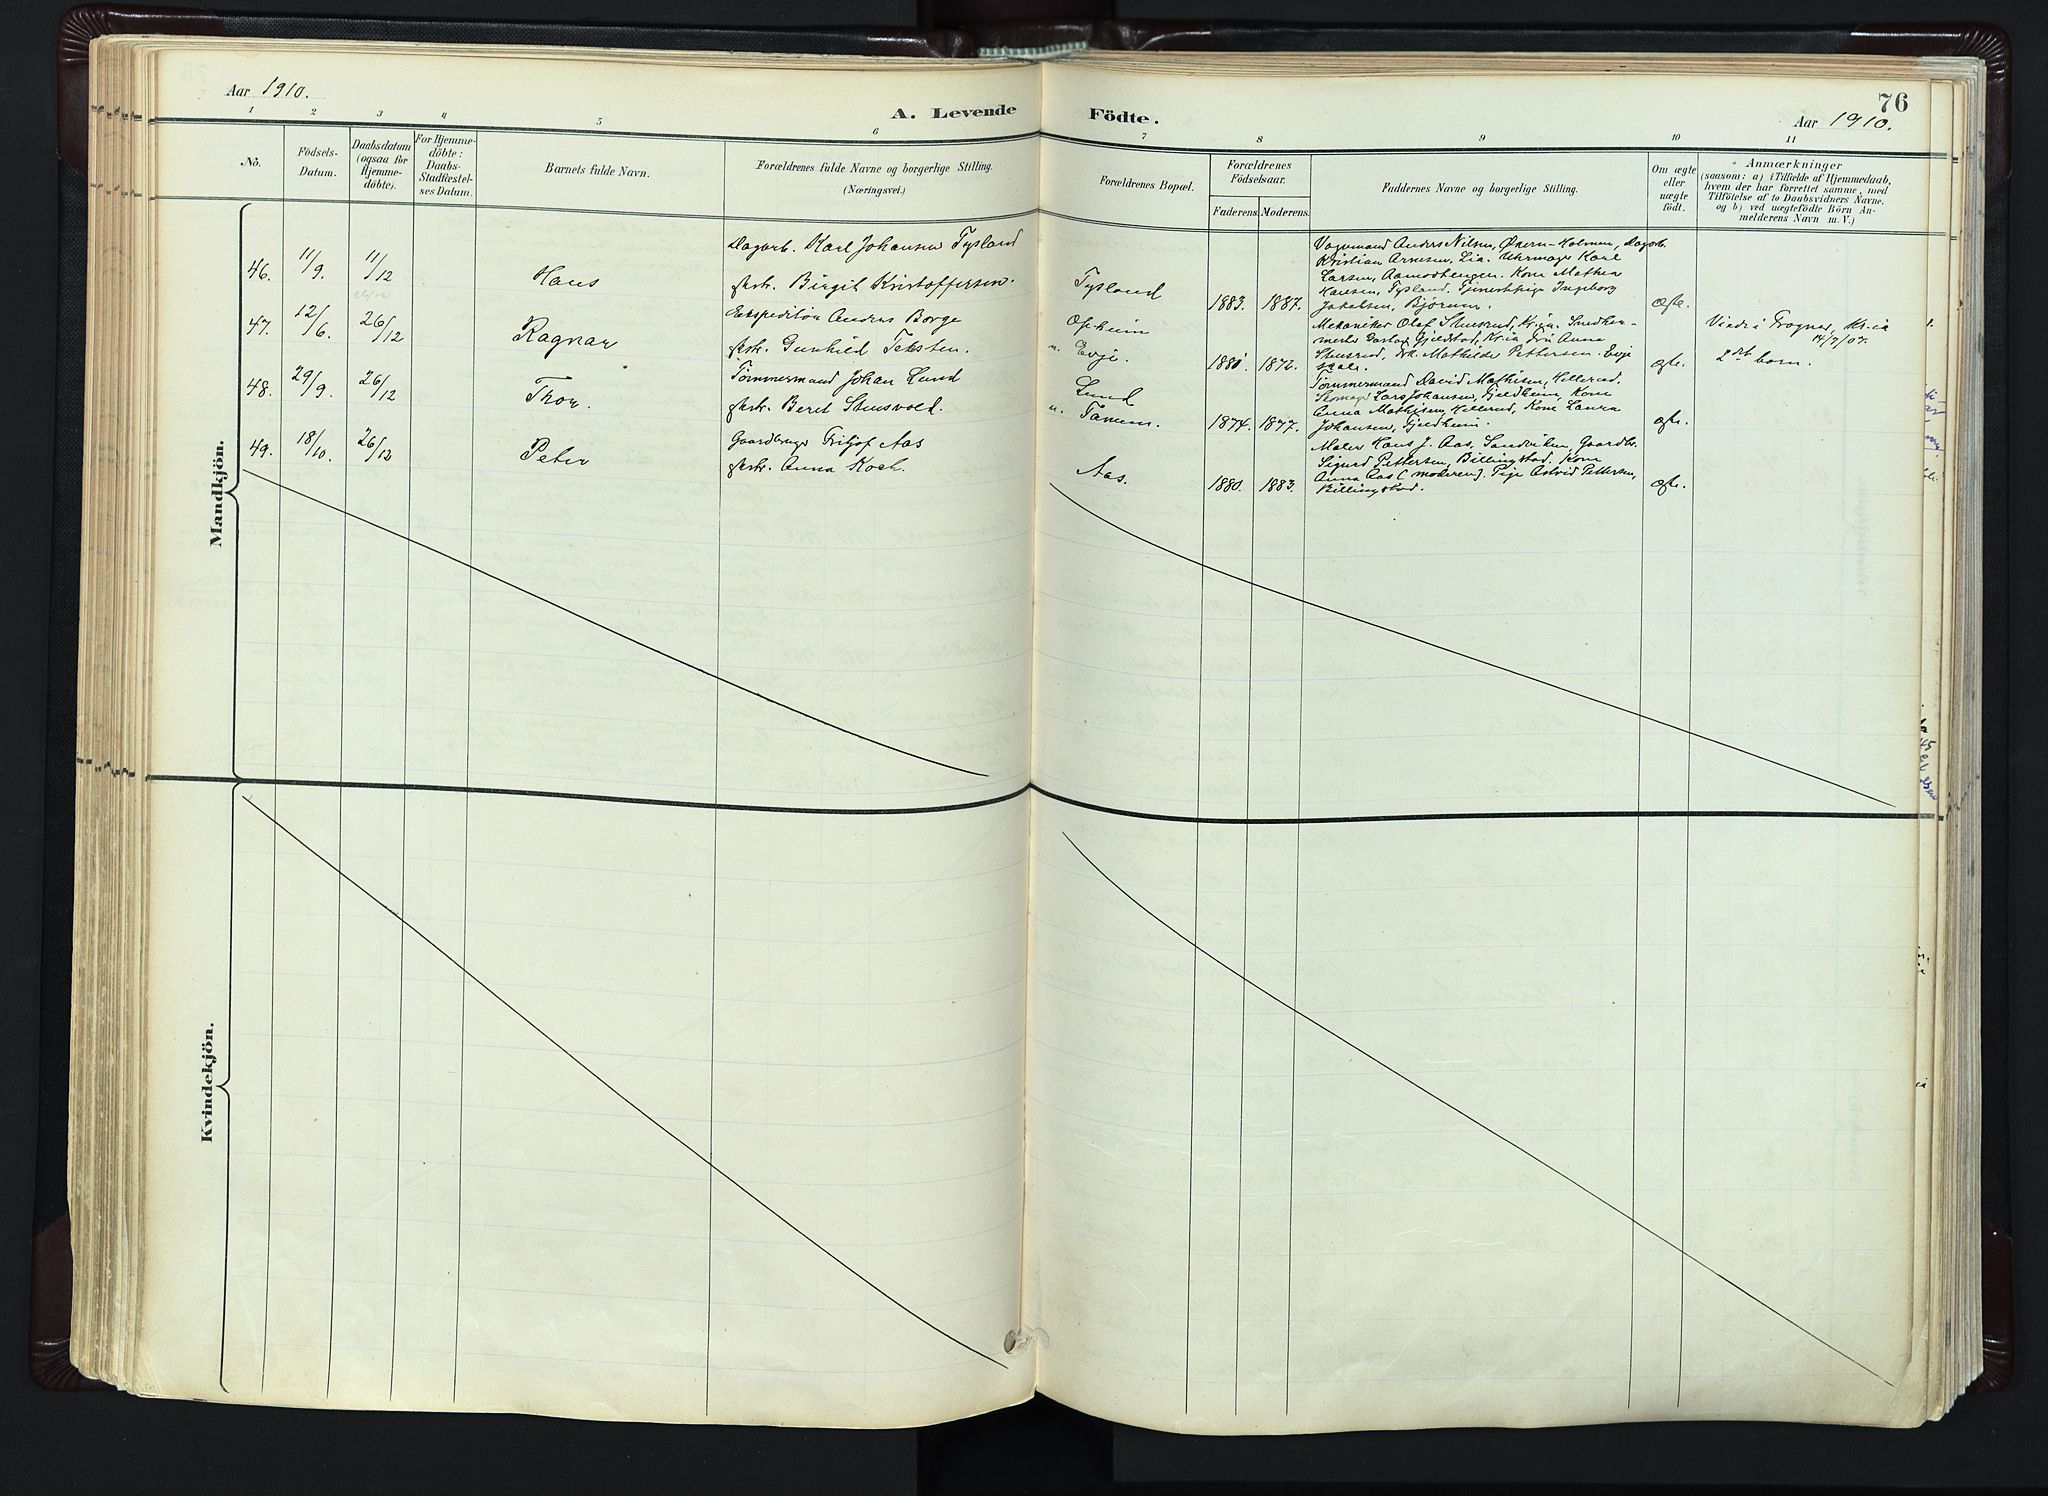 Aar 1910.
A. Levende
Födte.
76
Aar 1910.
1 2 3 4 5 6 7 8 9 10 11
No.
Födsels-
Datum.
Daabsdatum
(ogsaa for
Hjemme-
döbte).
For Hjemme-
döbte:
Daabs-
Stadfæstel-
ses Datum.
Barnets fulde Navn.
Forældrenes fulde Navne og borgerlige Stilling.
(Næringsvei.)
Forældrenes Bopæl.
Forældrenes
Födselsaar.
Faderens.
Moderens.
Faddernes Navne og borgerlige Stilling.
Om ægte
eller
uægte
födt.
Anmærkninger
(saasom: a) i Tilfælde af Hjemmedaab,
hvem der har forrettet samme, med
Tilföielse af to Daabsvidners Navne.
og b) ved uægtefödte Börn An-
melderens Navn m. V.)
Mandkjön.
46. 11/9. 11/12 Hans
Dagarb. Karl Johansen Tysland
Birgit Kristoffersen.
Tysland
1883. 1887.
Anders Nilsen, Økern-Holmen, Dagarb.
Kristian Arnesen, Lia. Uhrmager Karl
Larsen, Aamodtengen. Kone Mathea
Hansen, Tysland. Tjenestepige Ingeborg
Jakobsen, Bjørum.
ægte.
47. 12/6. 26/12 Ragnar
Ekspeditør Anders Borge
Gunhild Teksten.
Opheim
u. Evje.
1881. 1872.
Mekaniker Olaf Stensrud, Kr.ia. Snedker-
mester Gustav Gjeldstad, Kr.ia Fru Anna
Stensrud, Frk. Mathilde Pettersen. Evje
skole.
ægte.
Viede i Frogner, Kr.ia
14/7/07.
2det barn.
48. 29/9. 26/12 Thor.
Tømmermand Johan Lund
Beret Stensvold.
Lund
u. Tanum.
1874. 1877.
Tømmermand David Mathisen, Hellerud.
Skomager Lars Johansen, Gjeldheim, Kone
Anna Mathisen, Hellerud, Kone Laura
Johansen, Gjeldheim.
ægte.
49. 18/10. 26/12 Peter
Gaardbruger Fritjof Aas
Anna Koch.
Aas.
1880. 1883.
Maler Hans J. Aas, Sandviken, Gaardbr.
Sigurd Pettersen, Billingstad. Kone
Anna Aas (moderen). Pige Astrid Pettersen,
Billingstad.
ægte.
Kvindekjön.